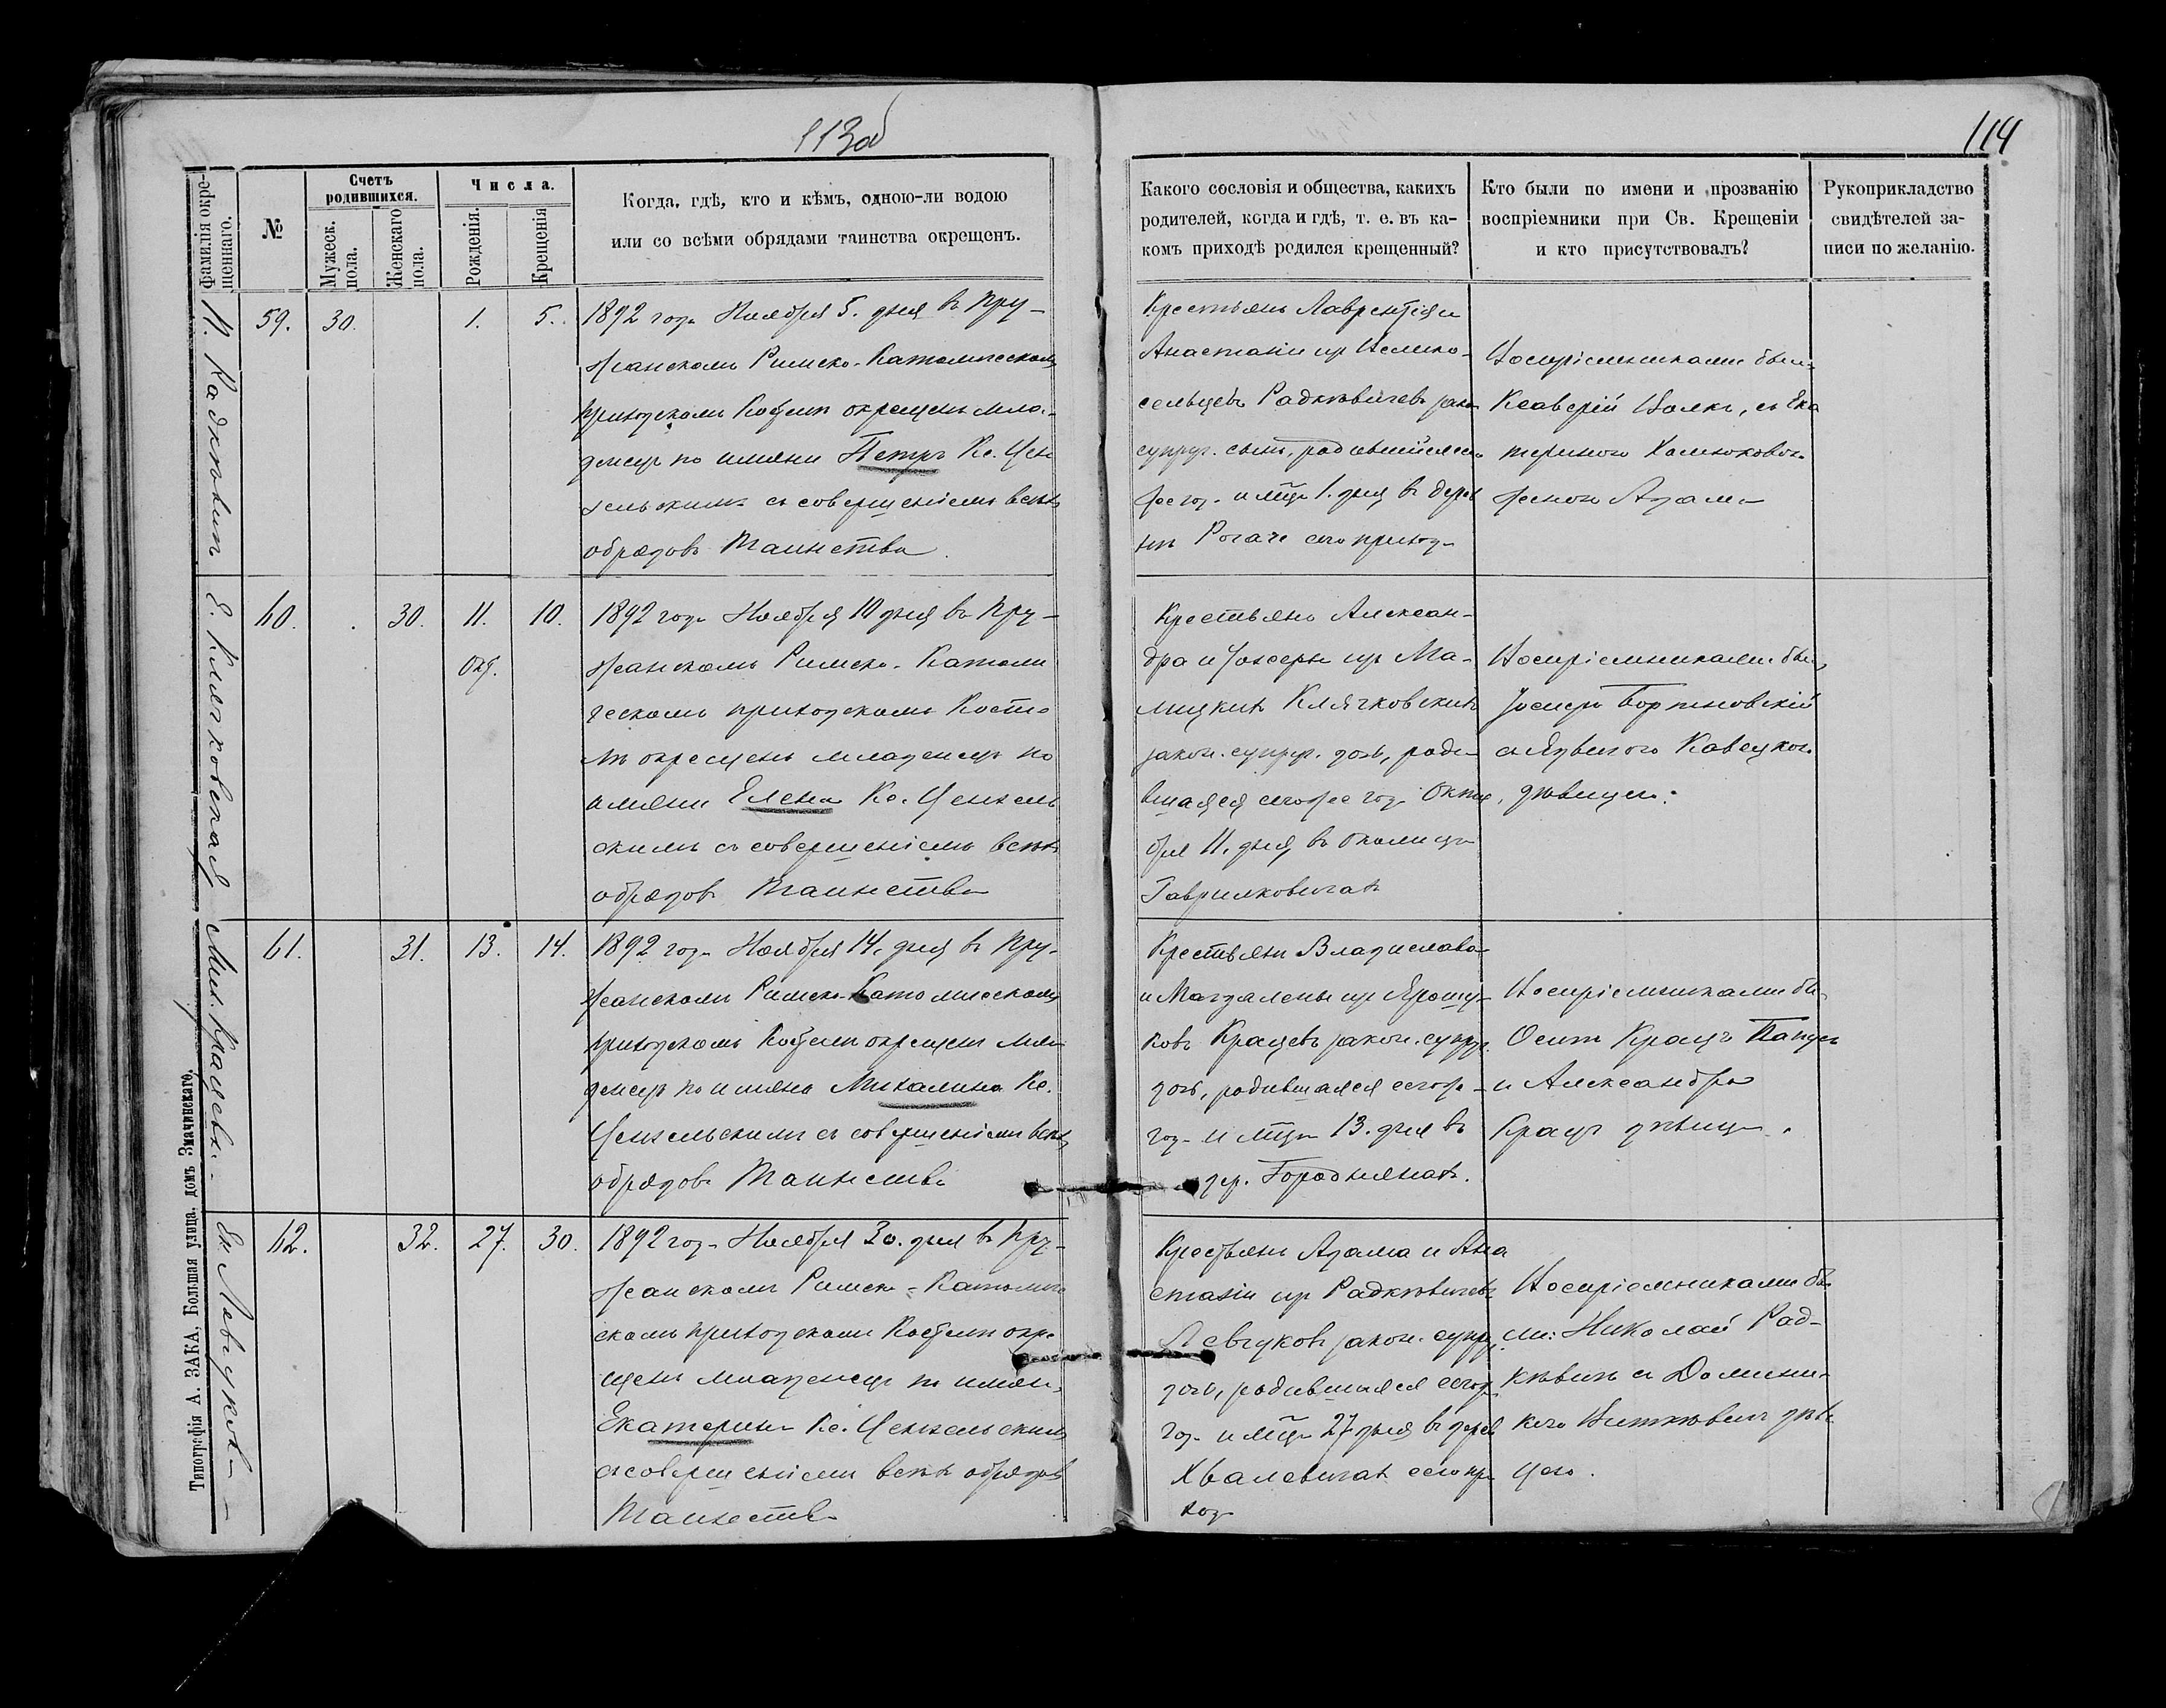 113об
114
Фамилія окре-
щеннаго.
№
Счетъ
родившихся.
Мужеск.
пола.
Женскаго
пола.
Числа.
Рожденія.
Крещенія
Когда, гдѣ, кто и кѣмъ, одною-ли водою
или со всѣми обрядами таинства окрещенъ.
Какого сословія и общества, какихъ
родителей, когда и гдѣ, т. е. въ ка-
комъ приходѣ родился крещенный?
Кто были по имени и прозванію
воспріемники при Св. Крещеніи
и кто присутствовалъ?
Рукоприкладство
свидѣтелей за-
писи по желанію.
П. Радкѣвичъ
59.
30.
1.
5.
1892 года Ноября 5. дня въ Пру-
жанскомъ Римско-Католическомъ
приходскомъ Костелѣ окрещенъ мла-
денецъ по имяни Петръ Кс. Цен
зельскимъ съ совершеніемъ всѣхъ
обрядовъ Таинства
Крестьянъ Лаврентія и
Анастасіи изъ
сельцевъ Радкѣвичевъ зак.
супруг. сынъ, родившійся се
же год. и мца 1. дня въ дерев
нѣ Рогаче сего прихода
Воспріемниками были
Ксаверій Волкъ, съ Ека
териною Хомюковой
женою Адама
Е. Клячковская
60.
30.
11.
Окт.
10.
1892 года Ноября 10 дня въ Пру-
жанскомъ Римско-Католи
ческомъ приходскомъ Косте
лѣ окрещенъ младенецъ по
имяни Елена Кс. Цензель
скимъ съ совершеніемъ всѣхъ
обрядовъ Таинства
Крестьянъ Александ-
дра и Іозефы изъ Ма-
лицкихъ Клячковскихъ
закон. супруг. дочь, роди-
вшаяся сего же года Октя
бря 11. дня, въ околицѣ
Гаврилковичахъ
Воспріемниками были
Іосифъ Бортновскій
съ Ядвигою Кавецкой
дѣвицею.
Мих. Крацевн.
61.
31.
13.
14.
1892 года Ноября 14. дня въ Пру-
жанскомъ Римско-Католическомъ
приходскомъ Костелѣ окрещенъ мла
денецъ по имяни Михалина Кс.
Цензельскимъ съ совершеніемъ всѣхъ
обрядовъ Таинства
Крестьянъ Владислава
и Магдалены изъ Ярошу-
ковъ Крацевъ закон. супруг.
дочь, родившаяся сего же
года и мца 13. дня въ
дер. Городнянахъ.
Воспріемниками бы.
Осипъ Крацъ
и Александра
Крацъ дѣвица.
Ек. Левчукова
62.
32.
27.
30.
1892 года Ноября 30. дня въ Пру-
жанскомъ Римско-Католиче
скомъ приходскомъ Костелѣ окре
щенъ младенецъ по имяни
Екатерина Кс. Цензельскимъ
съ совершеніемъ всѣхъ обрядовъ
Таинства
Крестьянъ Адама и Ана
стасіи изъ Радкѣвичевъ
Левчуковъ закон. супруг.
дочь, родившаяся сего же
года и мца 27 дня въ дерев
Хвалевичахъ сего при
хода
Воспріемниками бы
ли: Николай Рад-
кѣвичъ съ Домини-
кею Виткѣвичъ дѣви
цею.
Типографія А. ЗАКА, Большая улица, домъ Змачинскаго.